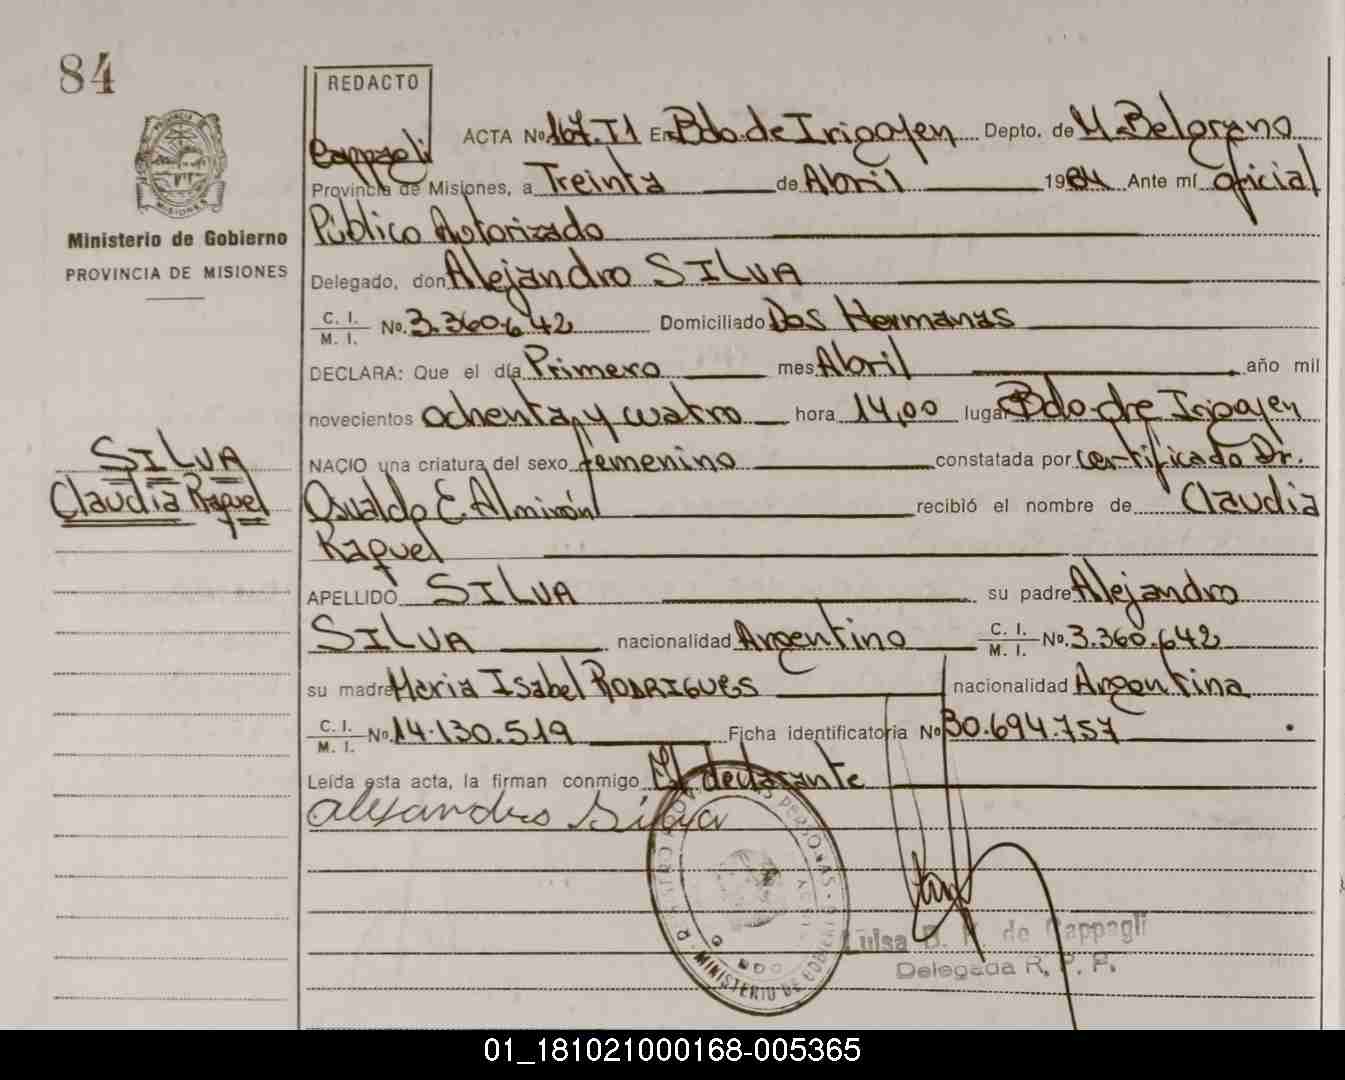 84
REDACTO
Cappagli
ACTA No. 167. T1 En Bdo. de Irigoyen Depto. de M. Belgrano
Provincia de Misiones, a Treinta de Abril 1984 Ante mí oficial
Público Autorizado
Ministerio de Gobierno
PROVINCIA DE MISIONES
Delegado, don Alejandro SILVA
C. I.
M. I. No. 3.360.642 Domiciliado Dos Hermanas
DECLARA: Que el día Primero mes Abril año mil
novecientos ochenta y cuatro hora 14,00 lugar Bdo de Irigoyen
SILVA
Claudia Raquel
NACIO una criatura del sexo femenino constatada por certificado Dr.
Osvaldo E. Almirón recibió el nombre de Claudia
Raquel
APELLIDO SILVA su padre Alejandro
SILVA nacionalidad Argentino C. I.
M. I. No. 3.360.642
su madre Maria Isabel RODRIGUES nacionalidad Argentina
C. I.
M. I. No. 14.130.519 Ficha identificatoria No 30.694.757
Leída esta acta, la firman conmigo El declarante
alejandro Silva
MINISTERIO DE GOBIERNO
PERSONAS
Luisa B. de Cappagli
Delegada R. P. P.
01_181021000168-005365